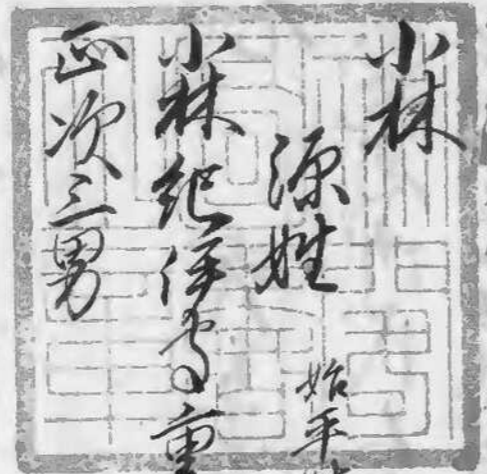 小林
源姓
始平
小林紀伊守重
正次三男